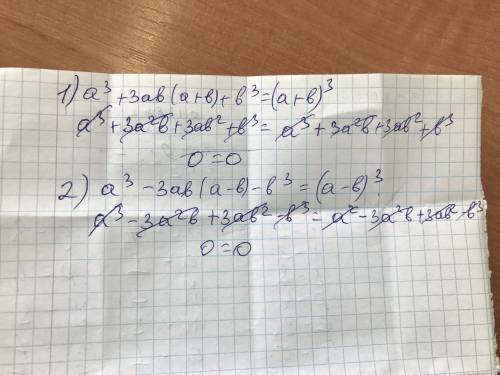 1) a³ + 3ab(a+b) + b³ = (a+b)³
a³ + 3a²b + 3ab² + b³ = a³ + 3a²b + 3ab² + b³
0 = 0
2) a³ - 3ab(a-b) - b³ = (a-b)³
a³ - 3a²b + 3ab² - b³ = a² - 3a²b + 3ab² - b³
0 = 0